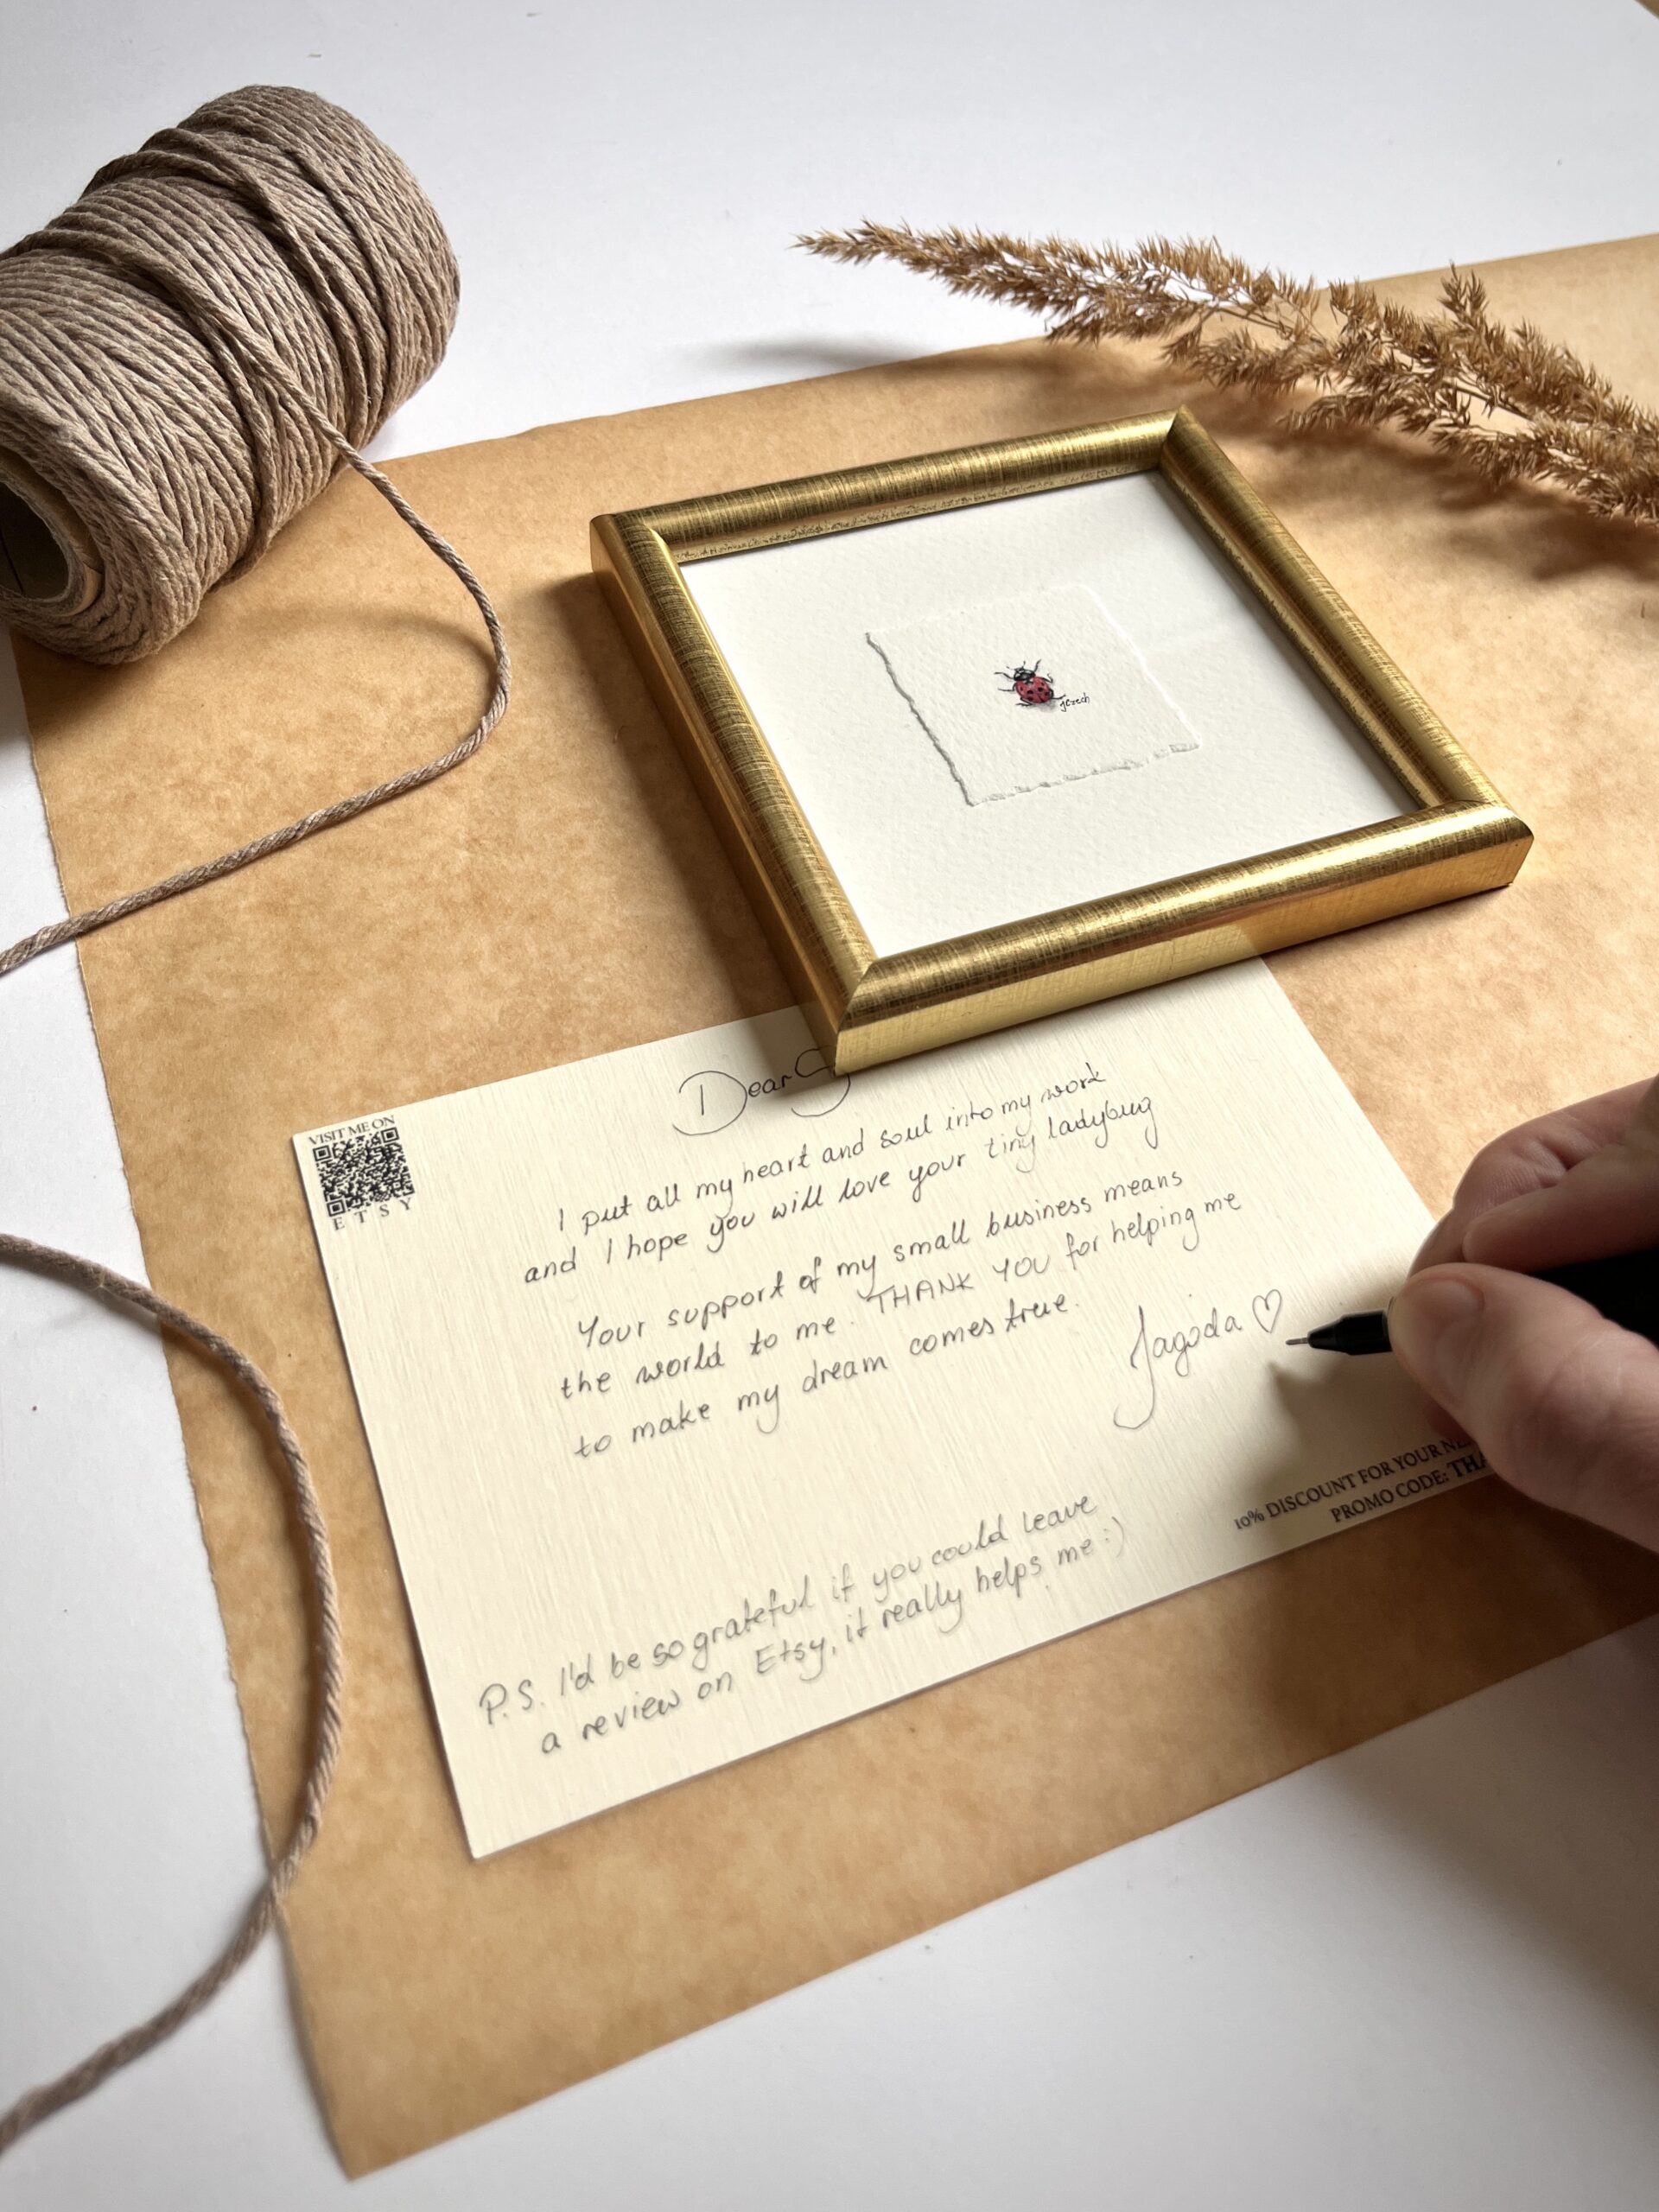 jczech
Dear S
VISIT ME ON
ETSY
I put all my heart and soul into my work
and I hope you will love your tiny ladybug
Your support of my small business means
the world to me. THANK YOU for helping me
to make my dream comes true.
Jagoda ♡
10% DISCOUNT FOR YOUR NE
PROMO CODE: THA
P.S. I'd be so grateful if you could leave
a review on Etsy, it really helps me :)